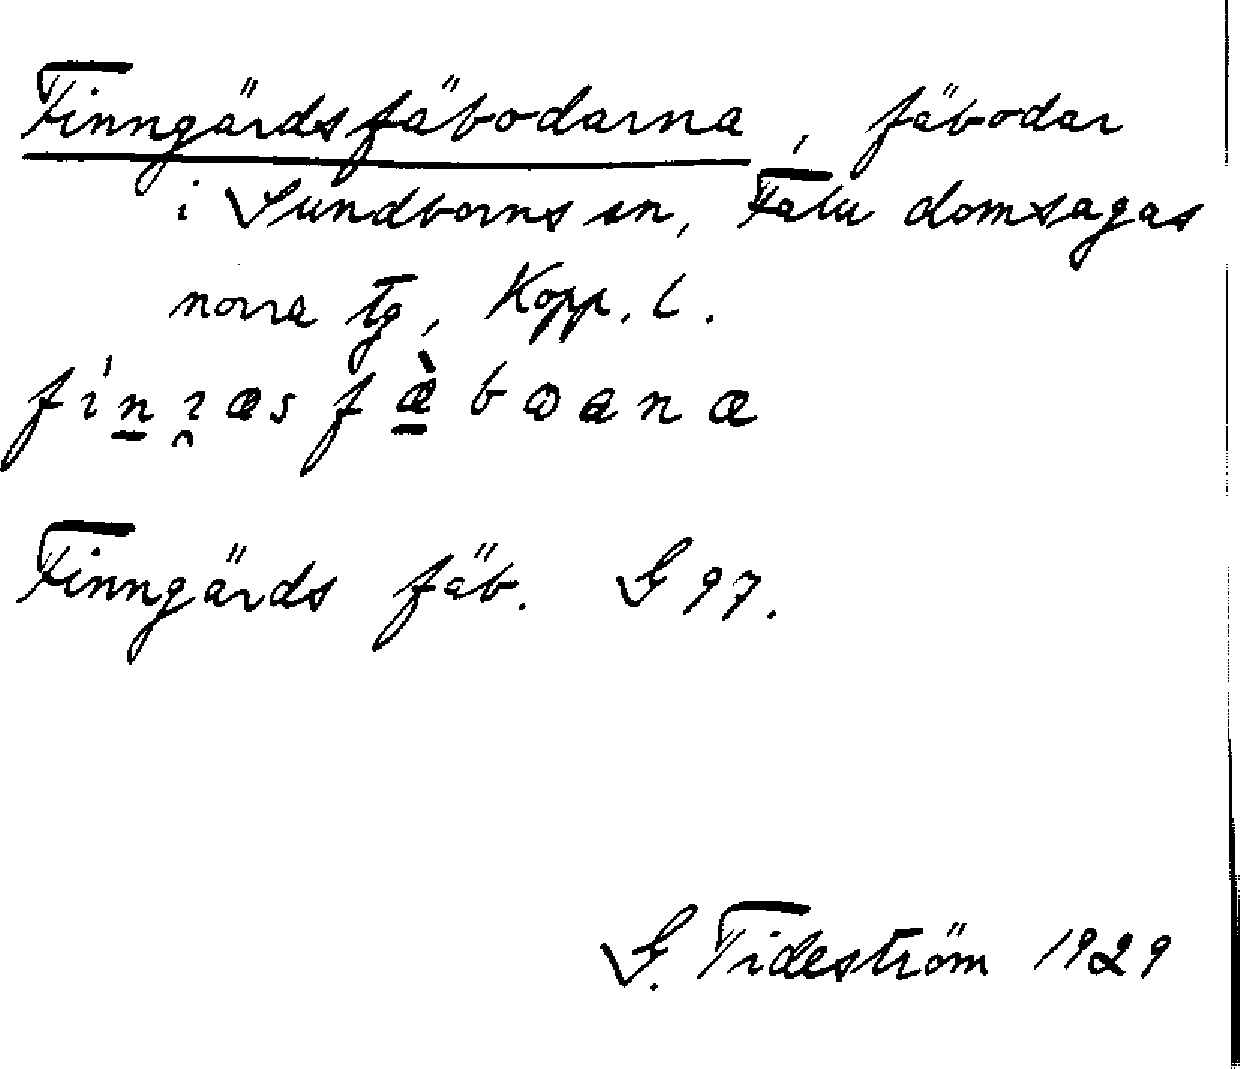 Finngärdsfäbodarna, fäbodar
i Sundborns sn, Falu domsagas
norra tg, Kopp. l.
Finngärds fäb. G 97.
G. Tideström 1929